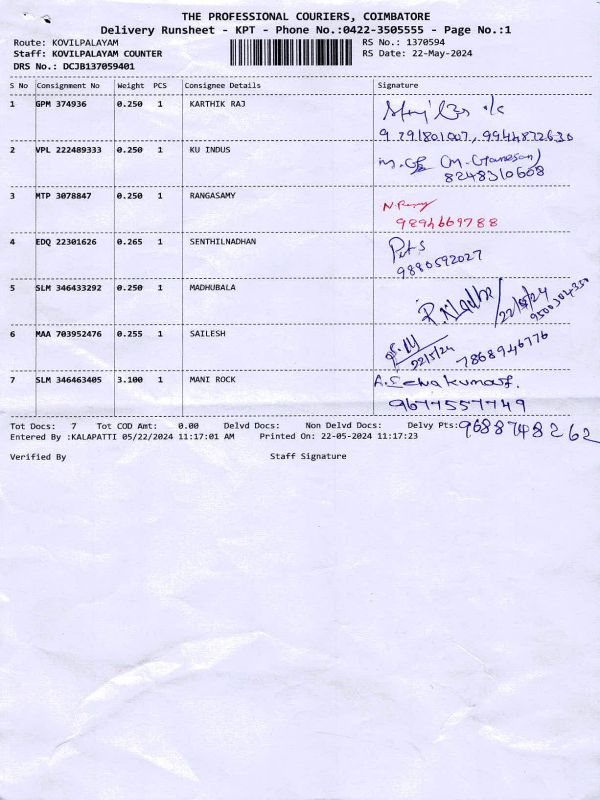 THE PROFESSIONAL COURIERS, COIMBATORE
Delivery Runsheet - KPT - Phone No.:0422-3505555 - Page No.:1
Route: KOVILPALAYAM RS No.: 1370594
Staff: KOVILPALAYAM COUNTER RS Date: 22-May-2024
DRS No.: DCJB137059401
S No Consignment No Weight PCS Consignee Details Signature
1 GPM 374936 0.250 1 KARTHIK RAJ
9944872630
2 VPL 222489333 0.250 1 KU INDUS (M. Ganesan)
8248310608
3 MTP 3078847 0.250 1 RANGASAMY
9894669788
4 EDQ 22301626 0.265 1 SENTHILNADHAN
9880592027
5 SLM 346433292 0.250 1 MADHUBALA
22/05/24
9500304350
6 MAA 703952476 0.255 1 SAILESH
22/5/24 7868946776
7 SLM 346463405 3.100 1 MANI ROCK A. Selvakumar
9677557749
Tot Docs: 7 Tot COD Amt: 0.00 Delvd Docs: Non Delvd Docs: Delvy Pts: 9688748262
Entered By :KALAPATTI 05/22/2024 11:17:01 AM Printed On: 22-05-2024 11:17:23
Verified By Staff Signature